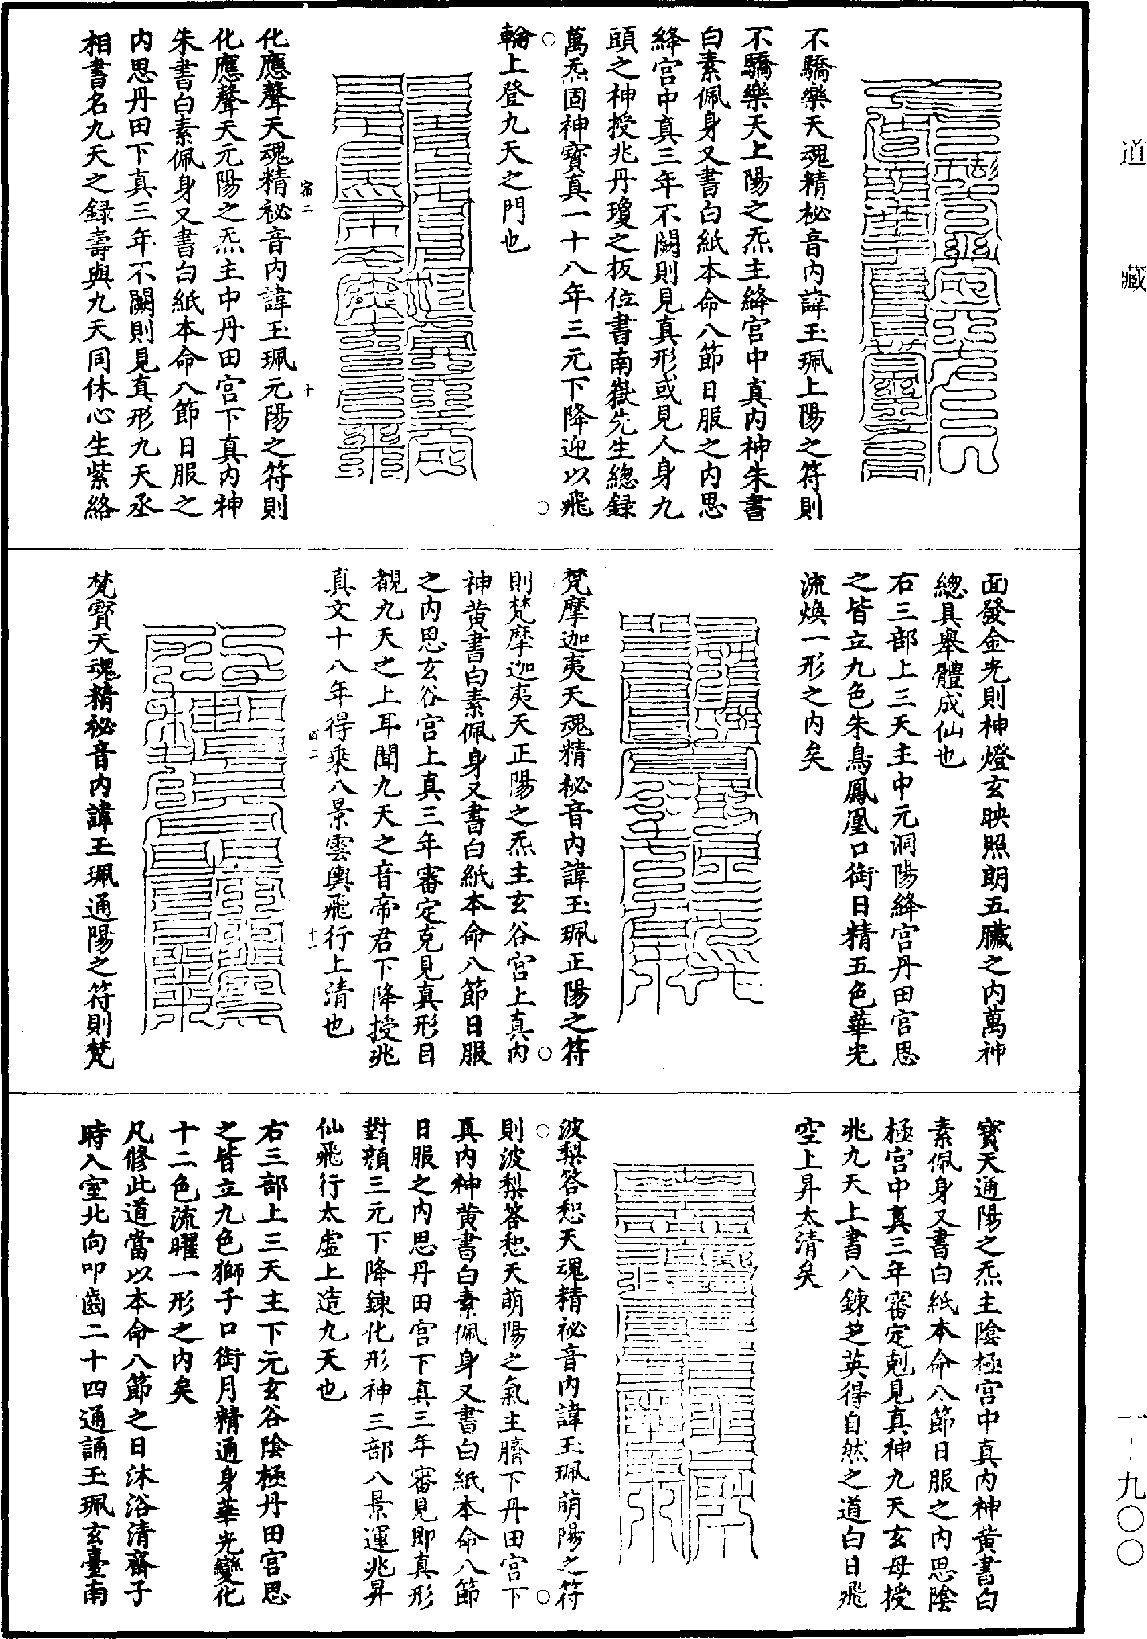 道藏
不驕樂天魂精秘音內諱玉珮上陽之符則
不驕樂天上陽之炁主絳宮中真內神朱書
白素佩身又書白紙本命八節日服之內思
絳宮中真三年不闕則見真形或見人身九
頭之神授兆丹瓊之板位書南嶽先生總錄
萬炁固神寶真一十八年三元下降迎以飛
輪上登九天之門也
化應聲天魂精祕音內諱玉珮元陽之符則
化應聲天元陽之炁主中丹田宮下真內神
朱書白素佩身又書白紙本命八節日服之
內思丹田下真三年不闕則見真形九天丞
相書名九天之録壽與九天同休心生紫絡
面發金光則神燈玄映照朗五臟之內萬神
總具舉體成仙也
右三部上三天主中元洞陽絳宮丹田宮思
之皆立九色朱鳥鳳凰口銜日精五色華光
流煥一形之內矣
梵摩迦夷天魂精祕音內諱玉珮正陽之符
則梵摩迦夷天正陽之炁主玄谷宮上真內
神黃書白素佩身又書白紙本命八節日服
之內思玄谷宮上真三年審定克見真形目
覩九天之上耳聞九天之音帝君下降授兆
真文十八年得乘八景雲輿飛行上清也
梵寶天魂精祕音內諱玉珮通陽之符則梵
寶天通陽之炁主陰極宮中真內神黃書白
素佩身又書白紙本命八節日服之內思陰
極宮中真三年審定剋見真神九天玄母授
兆九天上書八鍊芝英得自然之道白日飛
空上昇太清矣
波梨答恕天魂精祕音內諱玉珮萌陽之符
則波梨答恕天萌陽之氣主臍下丹田宮下
真內神黃書白素佩身又書白紙本命八節
日服之內思丹田宮下真三年審見即真形
對顏三元下降鍊化形神三部八景運兆昇
仙飛行太虛上造九天也
右三部上三天主下元玄谷陰極丹田宮思
之皆立九色獅子口銜月精通身華光變化
十二色流曜一形之內矣
凡修此道當以本命八節之日沐浴清齋子
時入室北向叩齒二十四通誦玉珮玄臺南
一-九〇〇